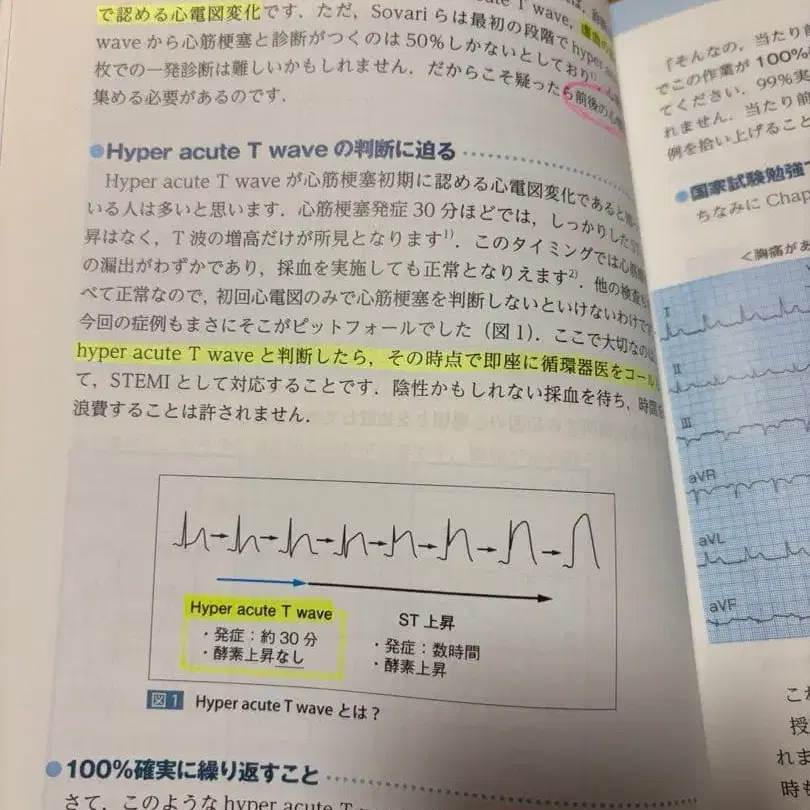 で認める心電図変化です．ただ，Sovari らは最初の段階で hyper
wave から心筋梗塞と診断がつくのは 50％しかないとしており
枚での一発診断は難しいかもしれません．だからこそ疑ったら前後の心
集める必要があるのです．
●Hyper acute T wave の判断に迫る
Hyper acute T wave が心筋梗塞初期に認める心電図変化であると
いる人は多いと思います．心筋梗塞発症 30 分ほどでは，しっかりした
昇はなく，T 波の増高だけが所見となります1)．このタイミングでは心筋
の漏出がわずかであり，採血を実施しても正常となりえます2)．他の検査も
べて正常なので，初回心電図のみで心筋梗塞を判断しないといけないわけで
今回の症例もまさにそこがピットフォールでした（図 1）．ここで大切なのは
hyper acute T wave と判断したら，その時点で即座に循環器医をコール
て，STEMI として対応することです．陰性かもしれない採血を待ち，時間を
浪費することは許されません．
Hyper acute T wave
・発症：約 30 分
・酵素上昇なし
ST 上昇
・発症：数時間
・酵素上昇
図 1 Hyper acute T wave とは？
●100％確実に繰り返すこと
さて，このような hyper acute T
「そんなの，当たり前
でこの作業が 100％
てください．99％実
れません．当たり前
例を拾い上げること
●国家試験勉強
ちなみに Chap
＜胸痛があ
I
II
III
aVR
aVL
aVF
これ
授
れま
時も